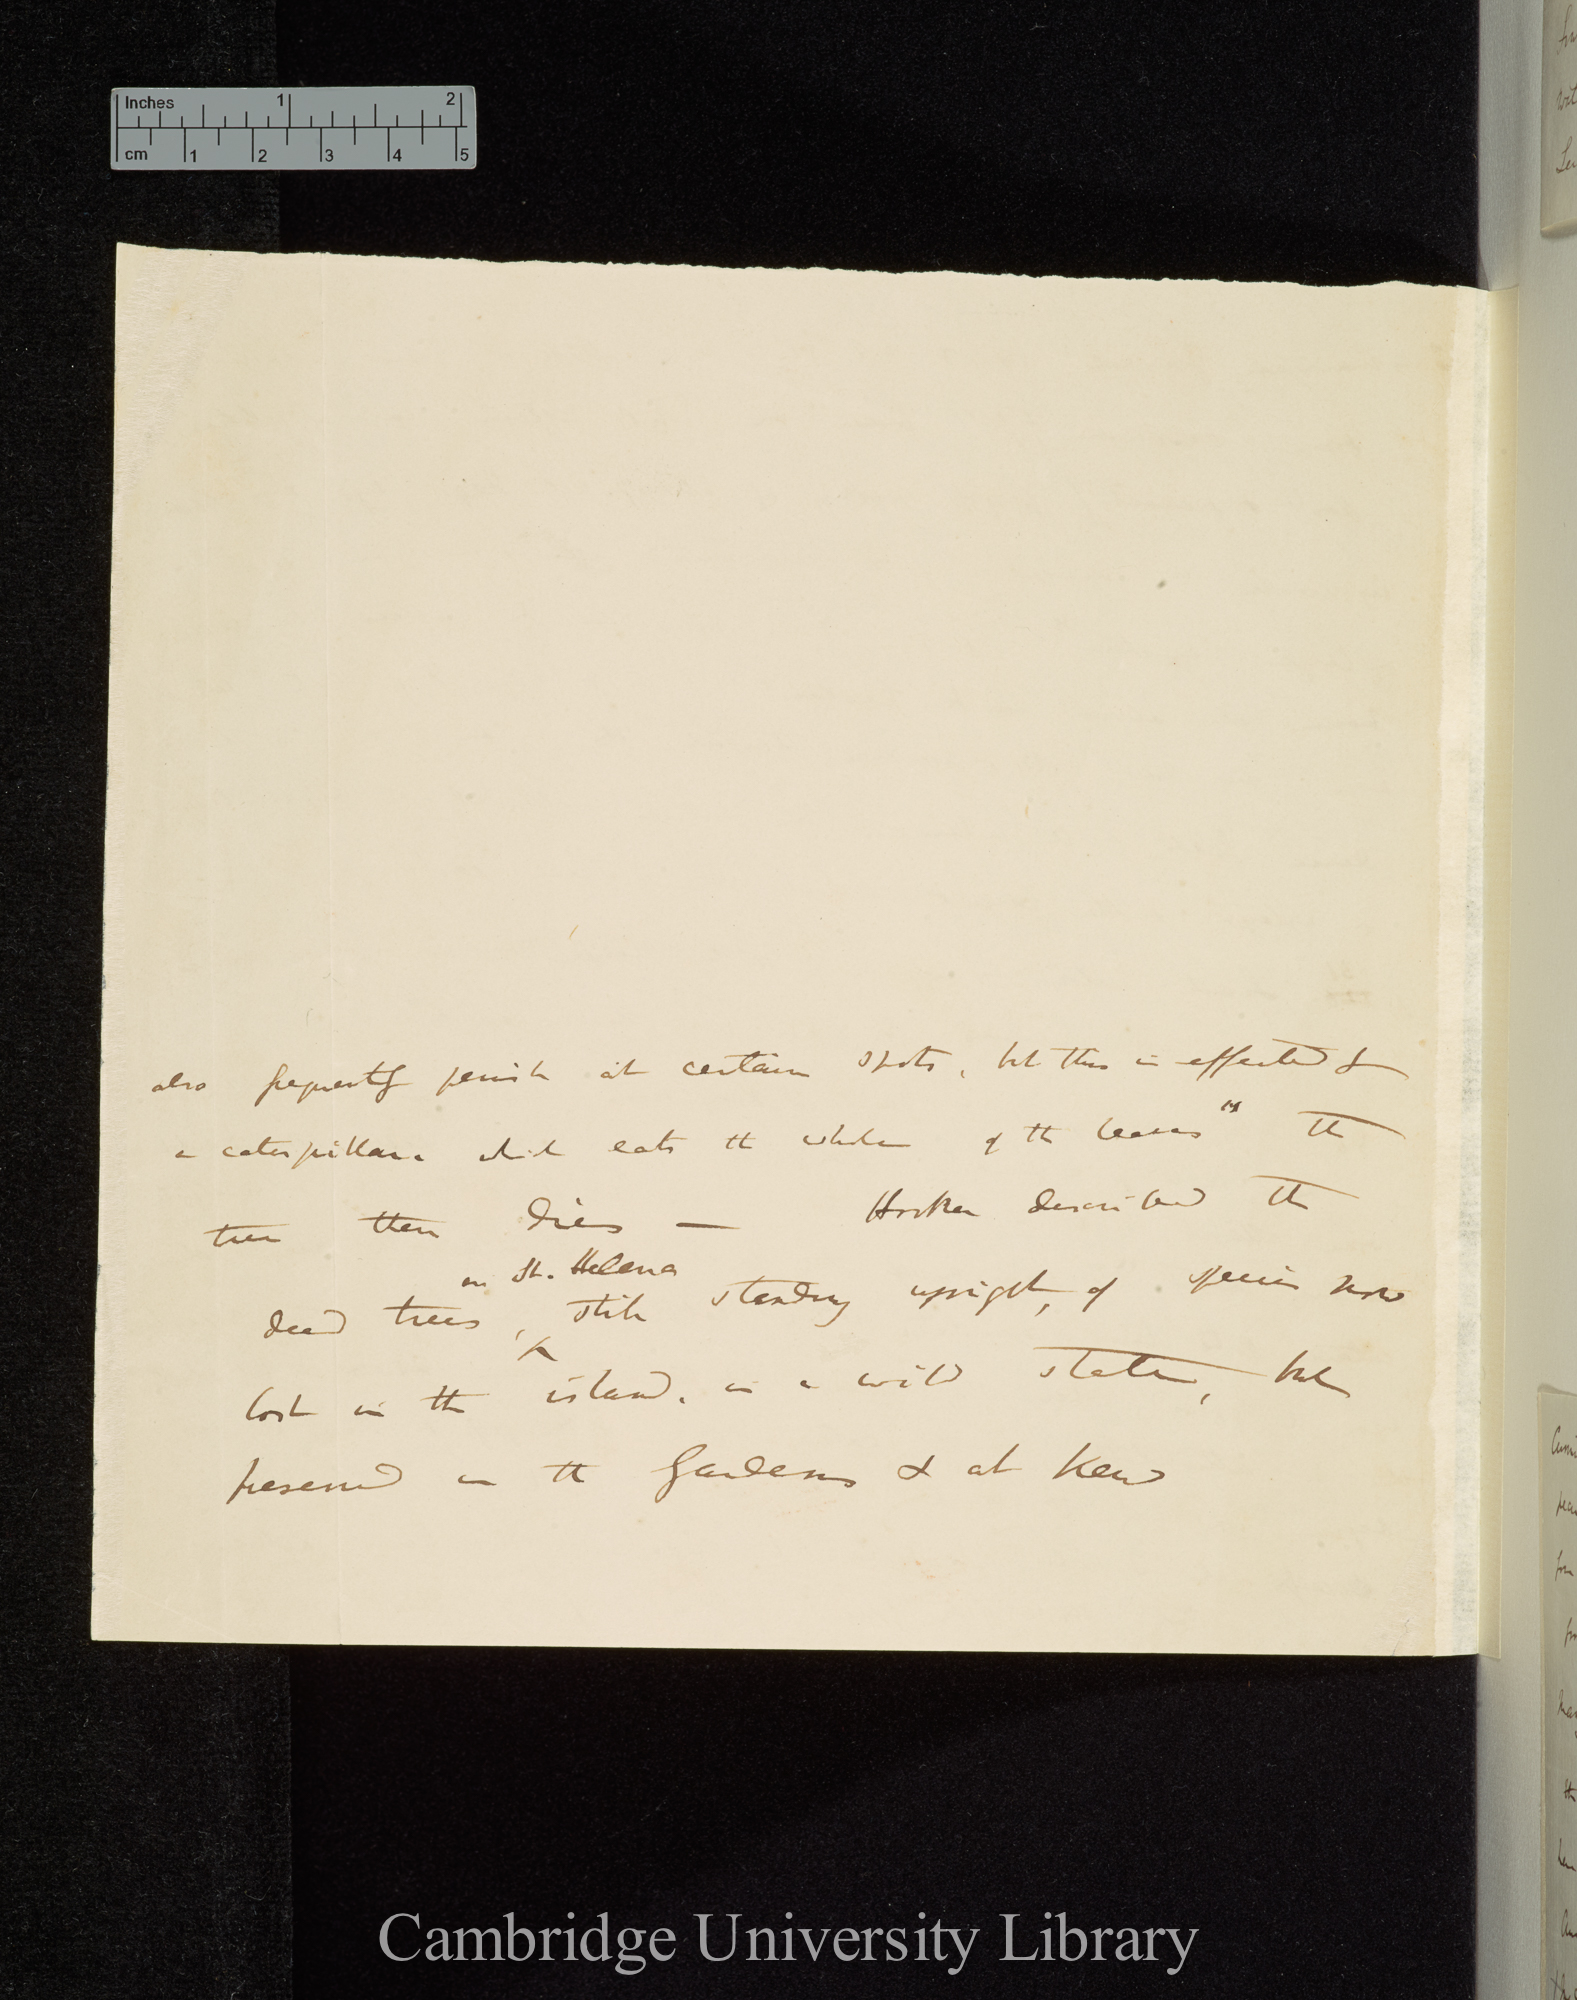 Inches 1 2
cm 1 2 3 4 5
also frequently perish at certain spots, but this is effected by
a caterpillar, which eats the whole of the leaves" the
tree then dies — Hooker described the
on St. Helena
dead trees, still standing upright, of species now
lost in the island, in a wild state, but
preserved in the Gardens & at Kew
Cambridge University Library